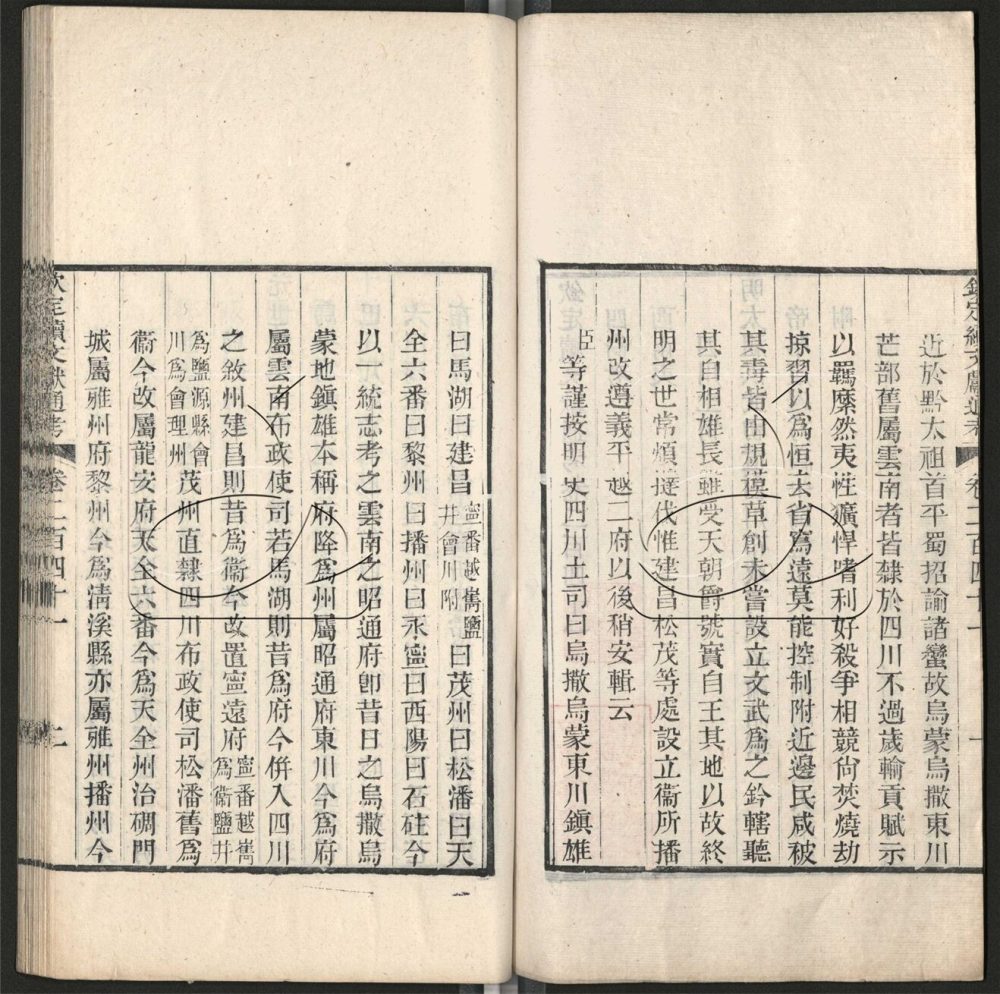 欽定續文獻通考 卷二百四十一 一
近於黔太祖首平蜀招諭諸蠻故烏蒙烏撒東川
芒部舊屬雲南者皆隸於四川不過歲輸貢賦示
以羈縻然夷性獷悍嗜利好殺爭相競尙焚燒劫
掠習以爲恒去省窵遠莫能控制附近邊民咸被
其毒皆由規模草創未嘗設立文武爲之鈐轄聽
其自相雄長雖受天朝爵號實自王其地以故終
明之世常煩撻伐惟建昌松茂等處設立衞所播
州改遵義平越二府以後稍安輯云
臣等謹按明史四川土司曰烏撒烏蒙東川鎭雄
曰馬湖曰建昌寍番越嶲鹽井會川附曰茂州曰松潘曰天
全六番曰黎州曰播州曰永寍曰酉陽曰石砫今
以一統志考之雲南之昭通府卽昔日之烏撒烏
蒙地鎭雄本稱府降爲州屬昭通府東川今爲府
屬雲南布政使司若馬湖則昔爲府今倂入四川
之敘州建昌則昔爲衞今改置寍遠府寍番越嶲爲衞鹽井
爲鹽源縣會川爲會理州茂州直隸四川布政使司松潘舊爲
衞今改屬龍安府天全六番今爲天全州治碉門
城屬雅州府黎州今爲淸溪縣亦屬雅州播州今
欽定續文獻通考 卷二百四十一 二